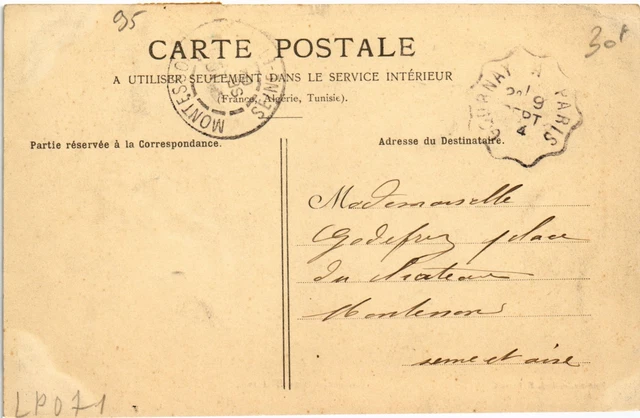 95
30f
CARTE POSTALE
A UTILISER SEULEMENT DANS LE SERVICE INTÉRIEUR
(France, Algérie, Tunisie).
MONTESSO SEINE-
GOURNAY A PARIS
9
PT
4
Partie réservée à la Correspondance.
Adresse du Destinataire.
Mademoiselle
Godefroy place
du Chateau
Montesson
seine et oise
LP071